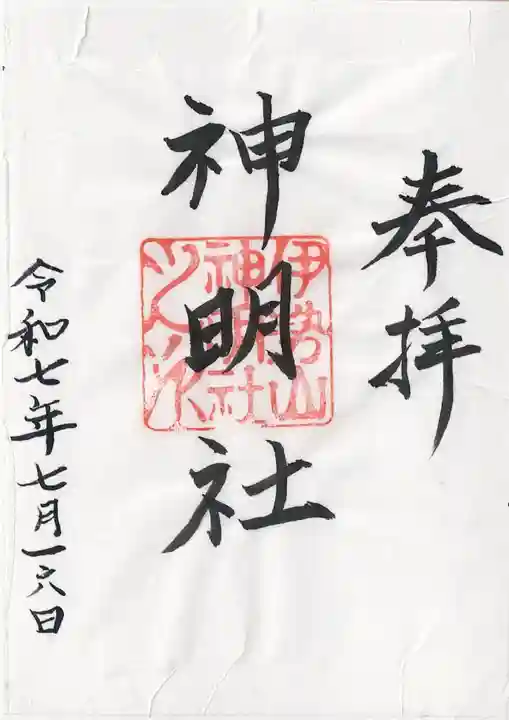 奉拝
神明社
伊勢山
神明社
之印
令和七年七月一六日